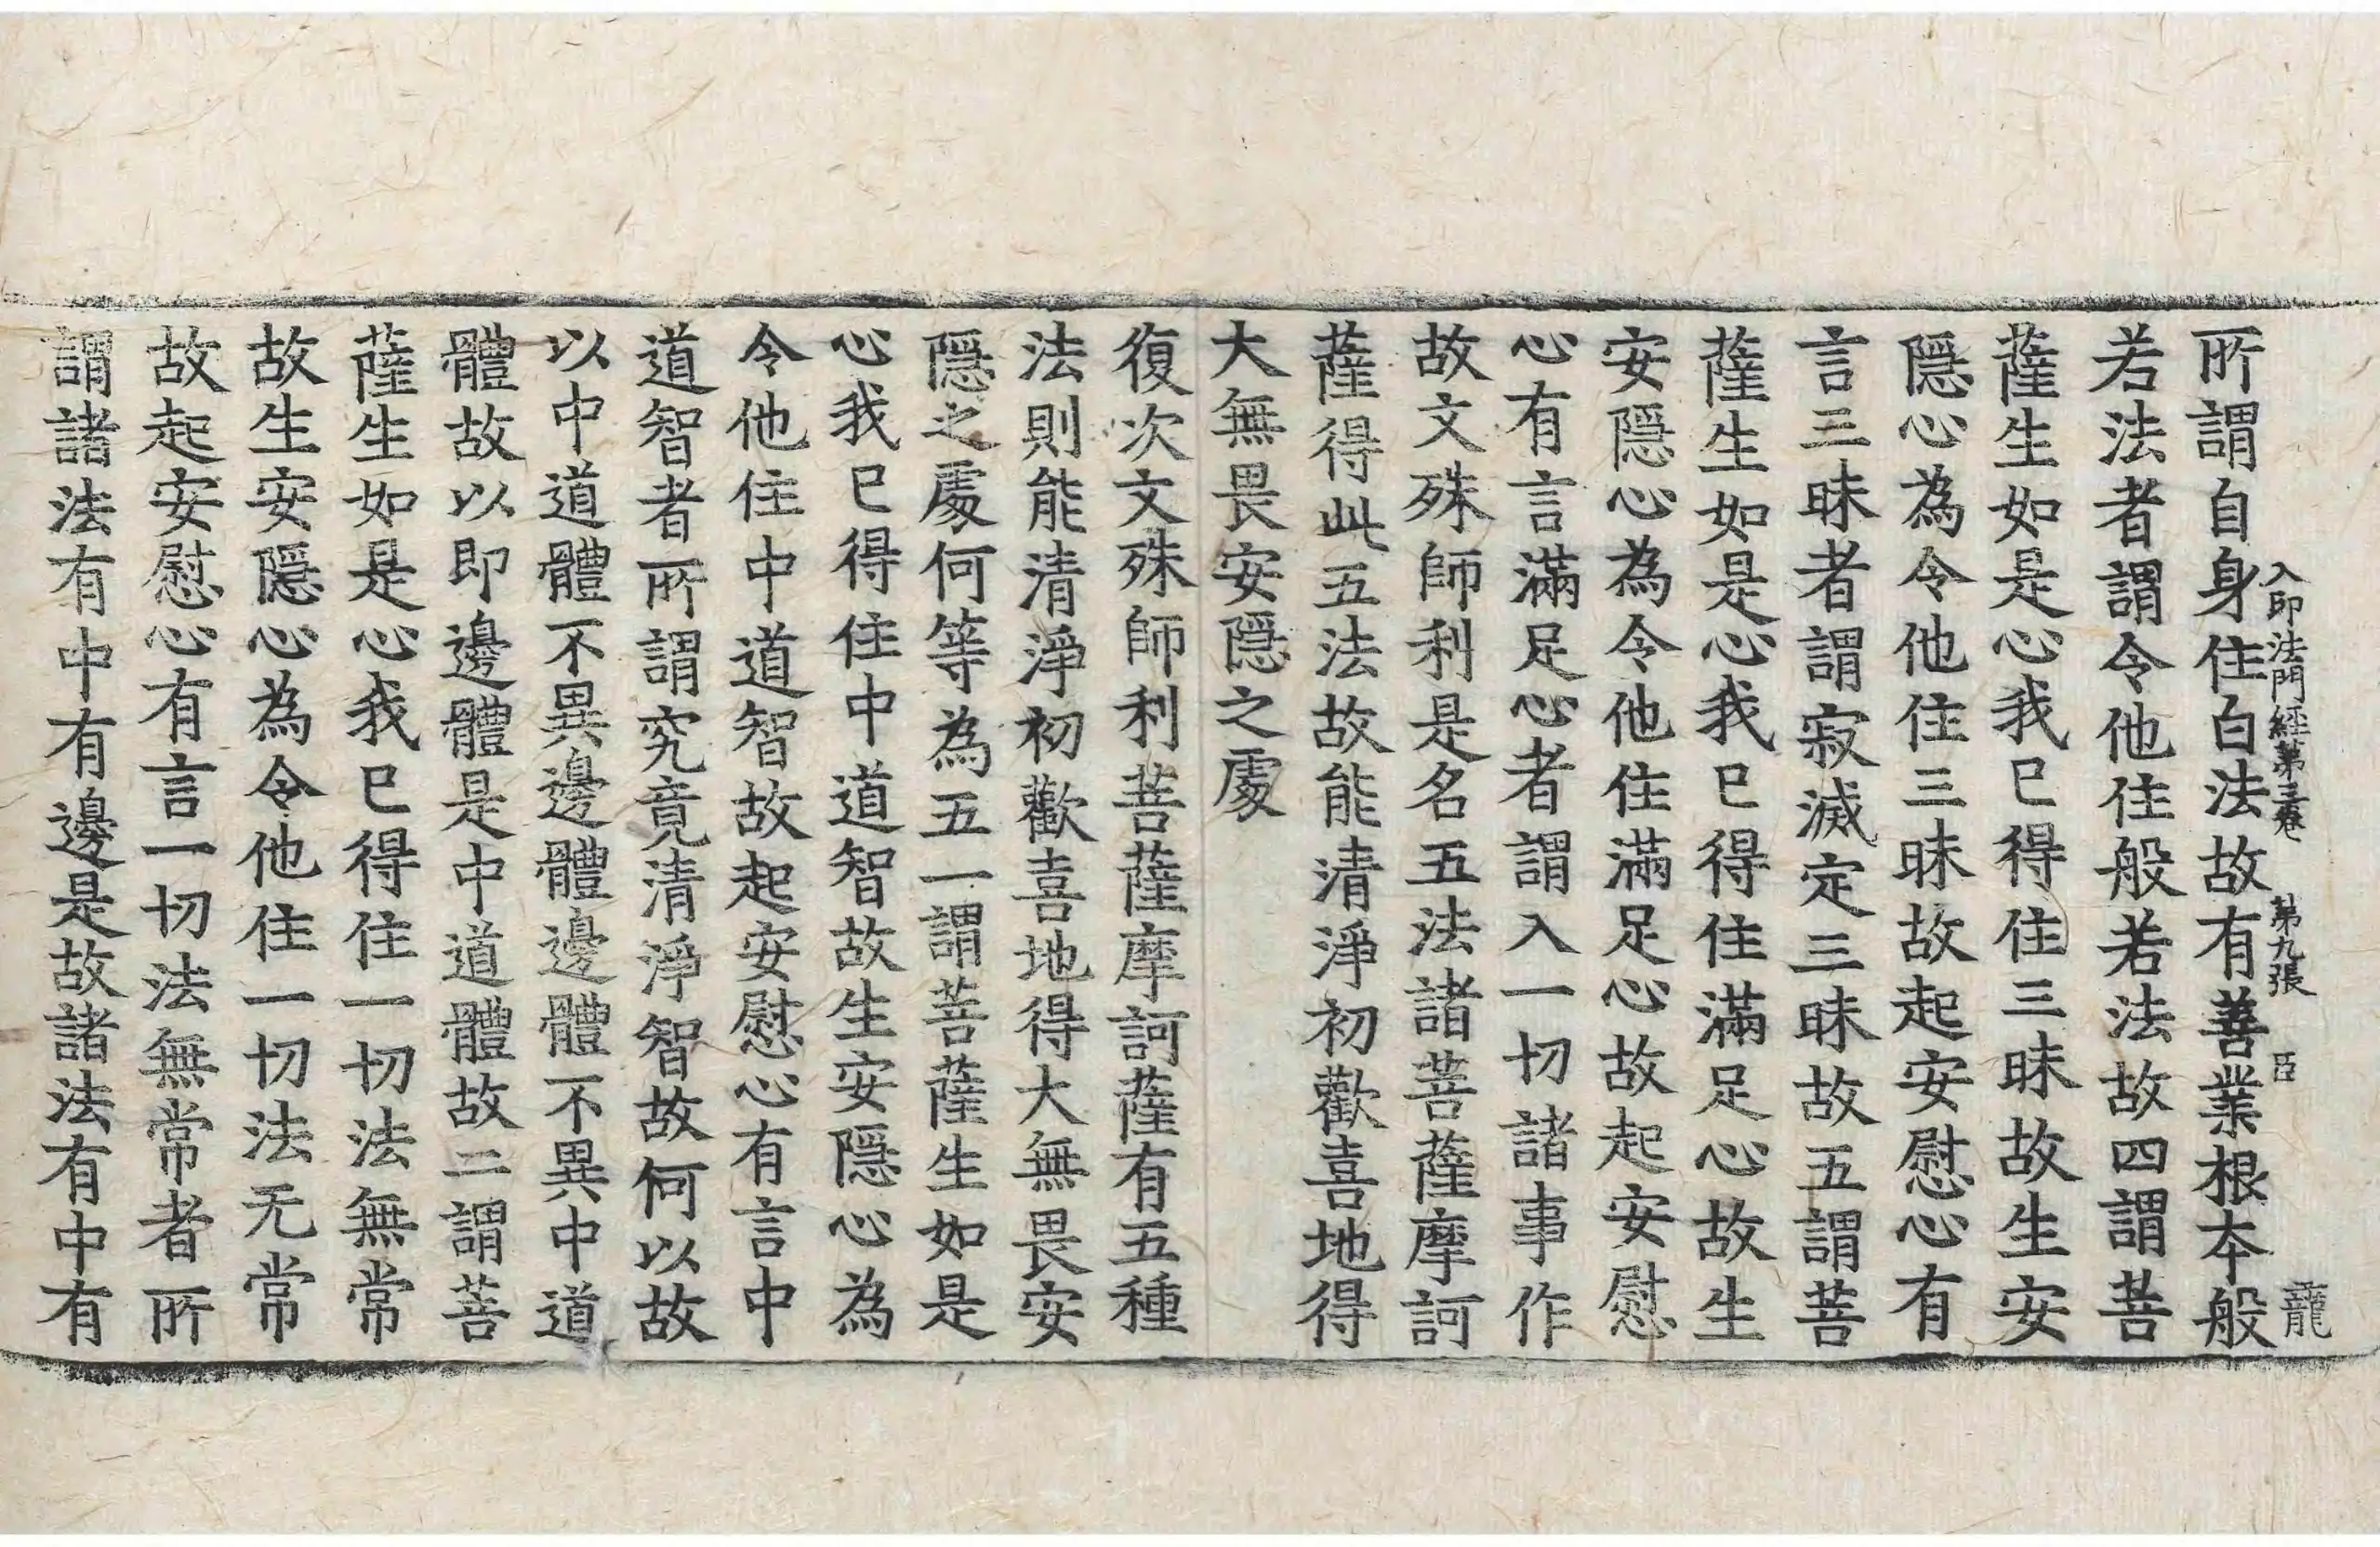 入印法門經第三卷 第九張 臣 龍
所謂自身住白法故有善業根本般
若法者謂令他住般若法故四謂菩
薩生如是心我已得住三昧故生安
隱心為令他住三昧故起安慰心有
言三昧者謂寂滅定三昧故五謂菩
薩生如是心我已得住滿足心故生
安隱心為令他住滿足心故起安慰
心有言滿足心者謂入一切諸事作
故文殊師利是名五法諸菩薩摩訶
薩得此五法故能清淨初歡喜地得
大無畏安隱之處
復次文殊師利菩薩摩訶薩有五種
法則能清淨初歡喜地得大無畏安
隱之處何等為五一謂菩薩生如是
心我已得住中道智故生安隱心為
令他住中道智故起安慰心有言中
道智者所謂究竟清淨智故何以故
以中道體不異邊體邊體不異中道
體故以即邊體是中道體故二謂菩
薩生如是心我已得住一切法無常
故生安隱心為令他住一切法无常
故起安慰心有言一切法無常者所
謂諸法有中有邊是故諸法有中有